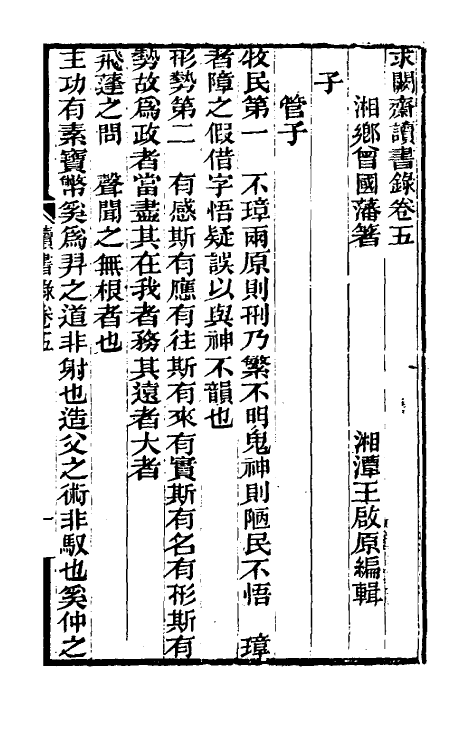 求闕齋讀書錄卷五
湘鄉曾國藩箸　湘潭王啟原編輯
子
管子
牧民第一　不璋兩原則刑乃繁不明鬼神則陋民不悟　璋
者障之假借字悟疑誤以與神不韻也
形勢第二　有感斯有應有往斯有來有實斯有名有形斯有
勢故爲政者當盡其在我者務其遠者大者
飛蓬之問　聲聞之無根者也
主功有素寶幣奚爲羿之道非射也造父之術非馭也奚仲之
讀書錄卷五　一